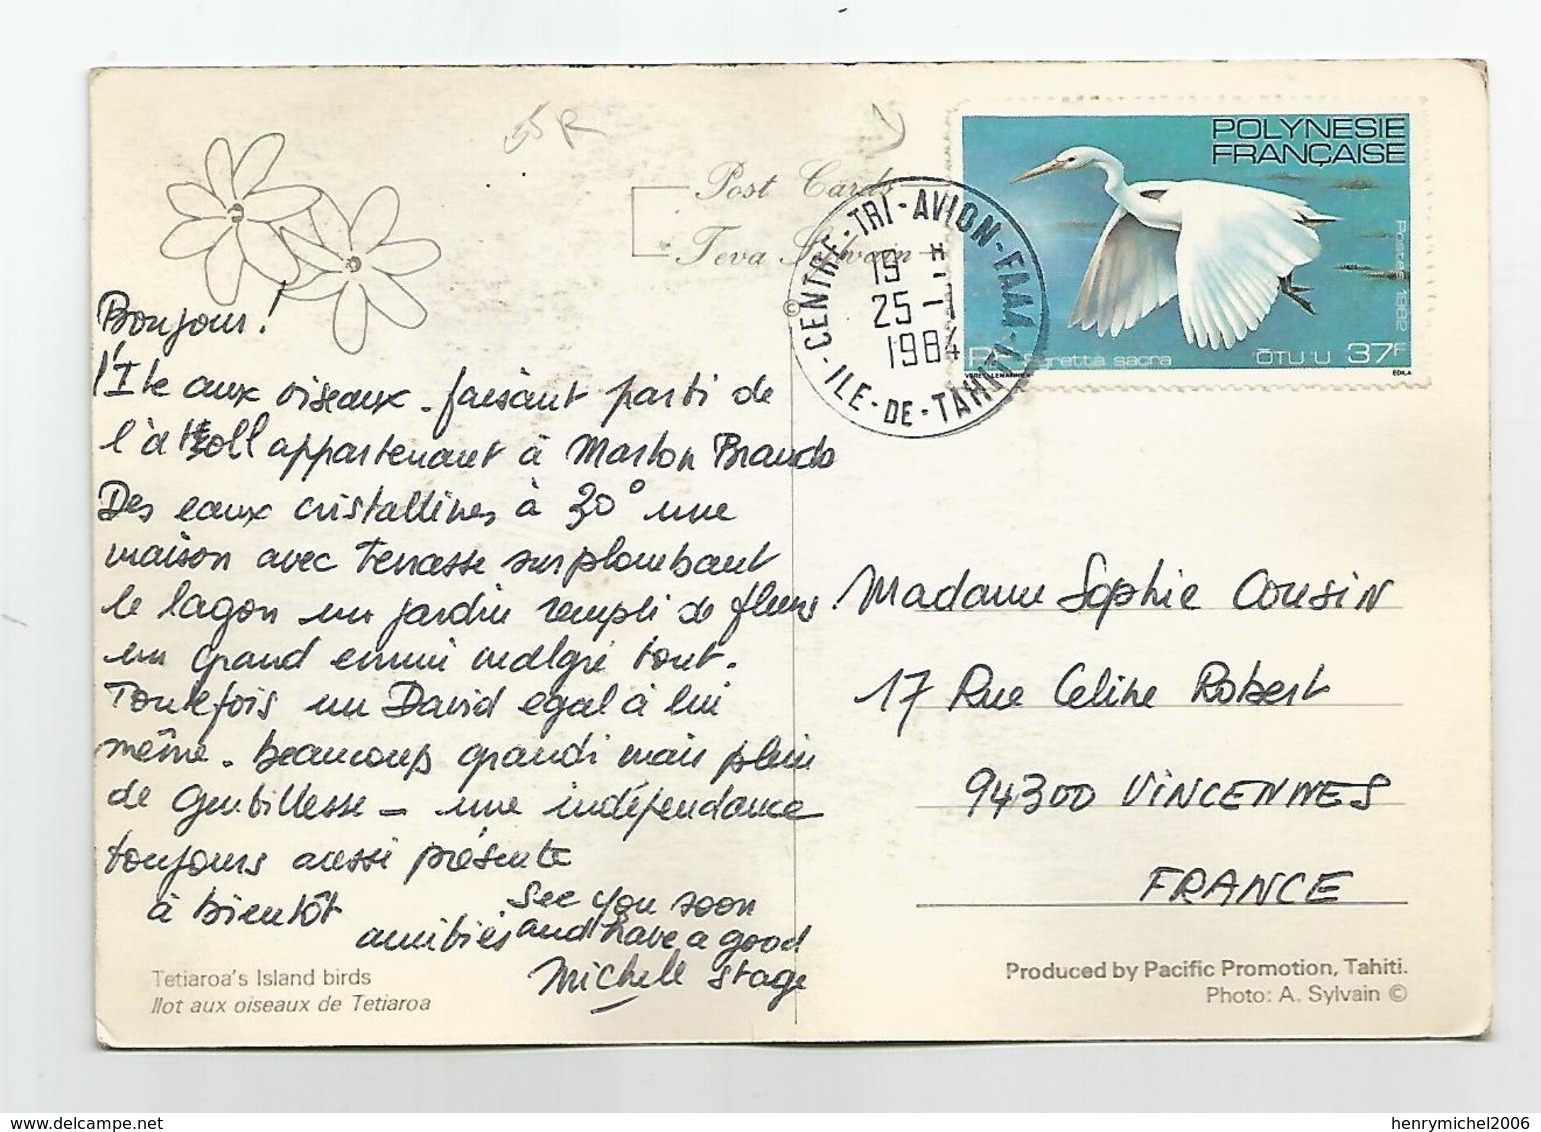 55R
Post Cards
Teva Sylvain
©
POLYNESIE
FRANÇAISE
Postes 1982
RF Egretta sacra ŌTU'U 37F
EDILA
CENTRE-TRI-AVION-FAAA
19 H
25-1
1984
ILE-DE-TAHITI
Bonjour!
l'Ile aux oiseaux. faisant parti de
l'atoll appartenant à Marlon Brando
Des eaux cristallines à 30° une
maison avec Terrasse surplombant
le lagon un jardin rempli de fleurs
un grand ennui malgré tout.
Toutefois un David egal à lui
même. beaucoup grandi mais plein
de gentillesse - une indépendance
toujours aussi présente
à bientôt
amitiés
See you soon
and have a good
stage
Michell
Madame Sophie Cousin
17 Rue Celine Robert
94300 VINCENNES
FRANCE
Tetiaroa's Island birds
Ilot aux oiseaux de Tetiaroa
Produced by Pacific Promotion, Tahiti.
Photo: A. Sylvain ©
henrymichel2006